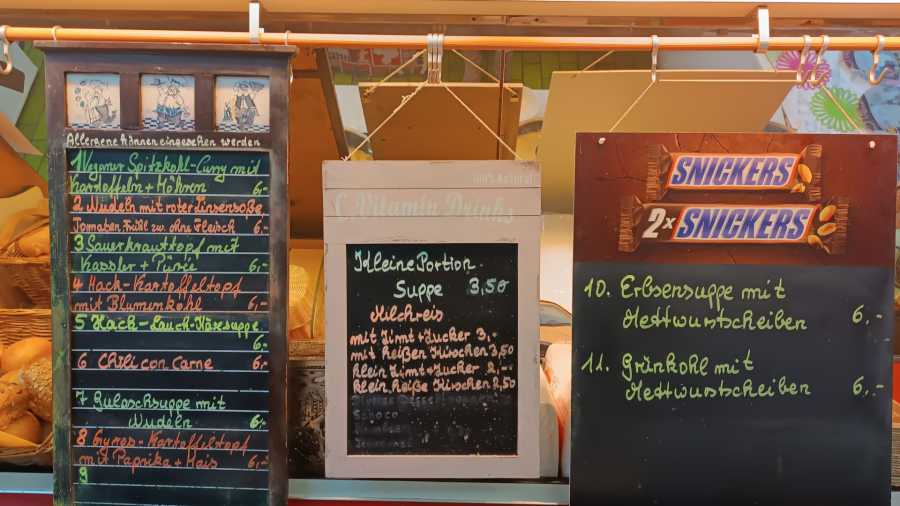 Allergene können eingesehen werden
1 Veganer Spitzkohl-Curry mit
Kartoffeln + Möhren 6,-
2 Nudeln mit roter Linsensoße,
Tomaten frühl zw. ohne Fleisch 6,-
3 Sauerkrauttopf mit
Kassler + Pürée 6,-
4 Hack-Kartoffeltopf
mit Blumenkohl 6,-
5 Hack-Lauch-Käsesuppe
6,-
6 Chili con Carne 6,-
7 Gulaschsuppe mit
Nudeln 6,-
8 Gyros-Kartoffeltopf
mit Paprika + Mais 6,-
9
100% Naturals
C Vitamin Drinks
Kleine Portion
Suppe 3,50
Milchreis
mit Zimt + Zucker 3,-
mit heißen Kirschen 3,50
klein Zimt + Zucker 2,-
klein heiße Kirschen 2,50
Schoco
SNICKERS
2x SNICKERS
10. Erbsensuppe mit
Mettwurstscheiben 6,-
11. Grünkohl mit
Mettwurstscheiben 6,-